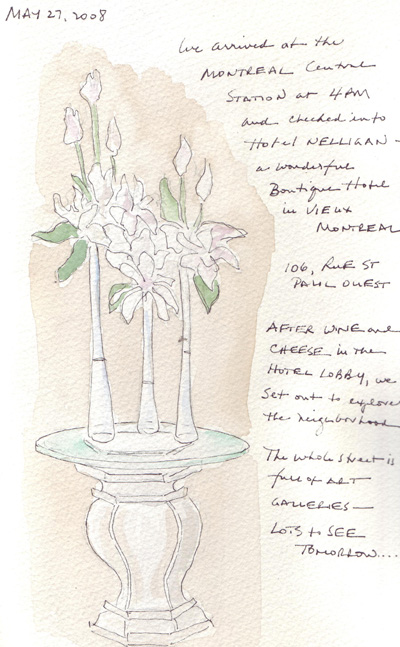 MAY 27, 2008
We arrived at the
MONTREAL Central
STATION at 4AM
and checked into
Hotel NELLIGAN -
a wonderful
Boutique Hotel
in VIEUX
MONTREAL
106, RUE ST
PAUL OUEST
AFTER WINE and
CHEESE in the
HOTEL LOBBY, we
set out to explore
the neighborhood
The whole street is
full of ART
GALLERIES —
LOTS to SEE
TOMORROW....